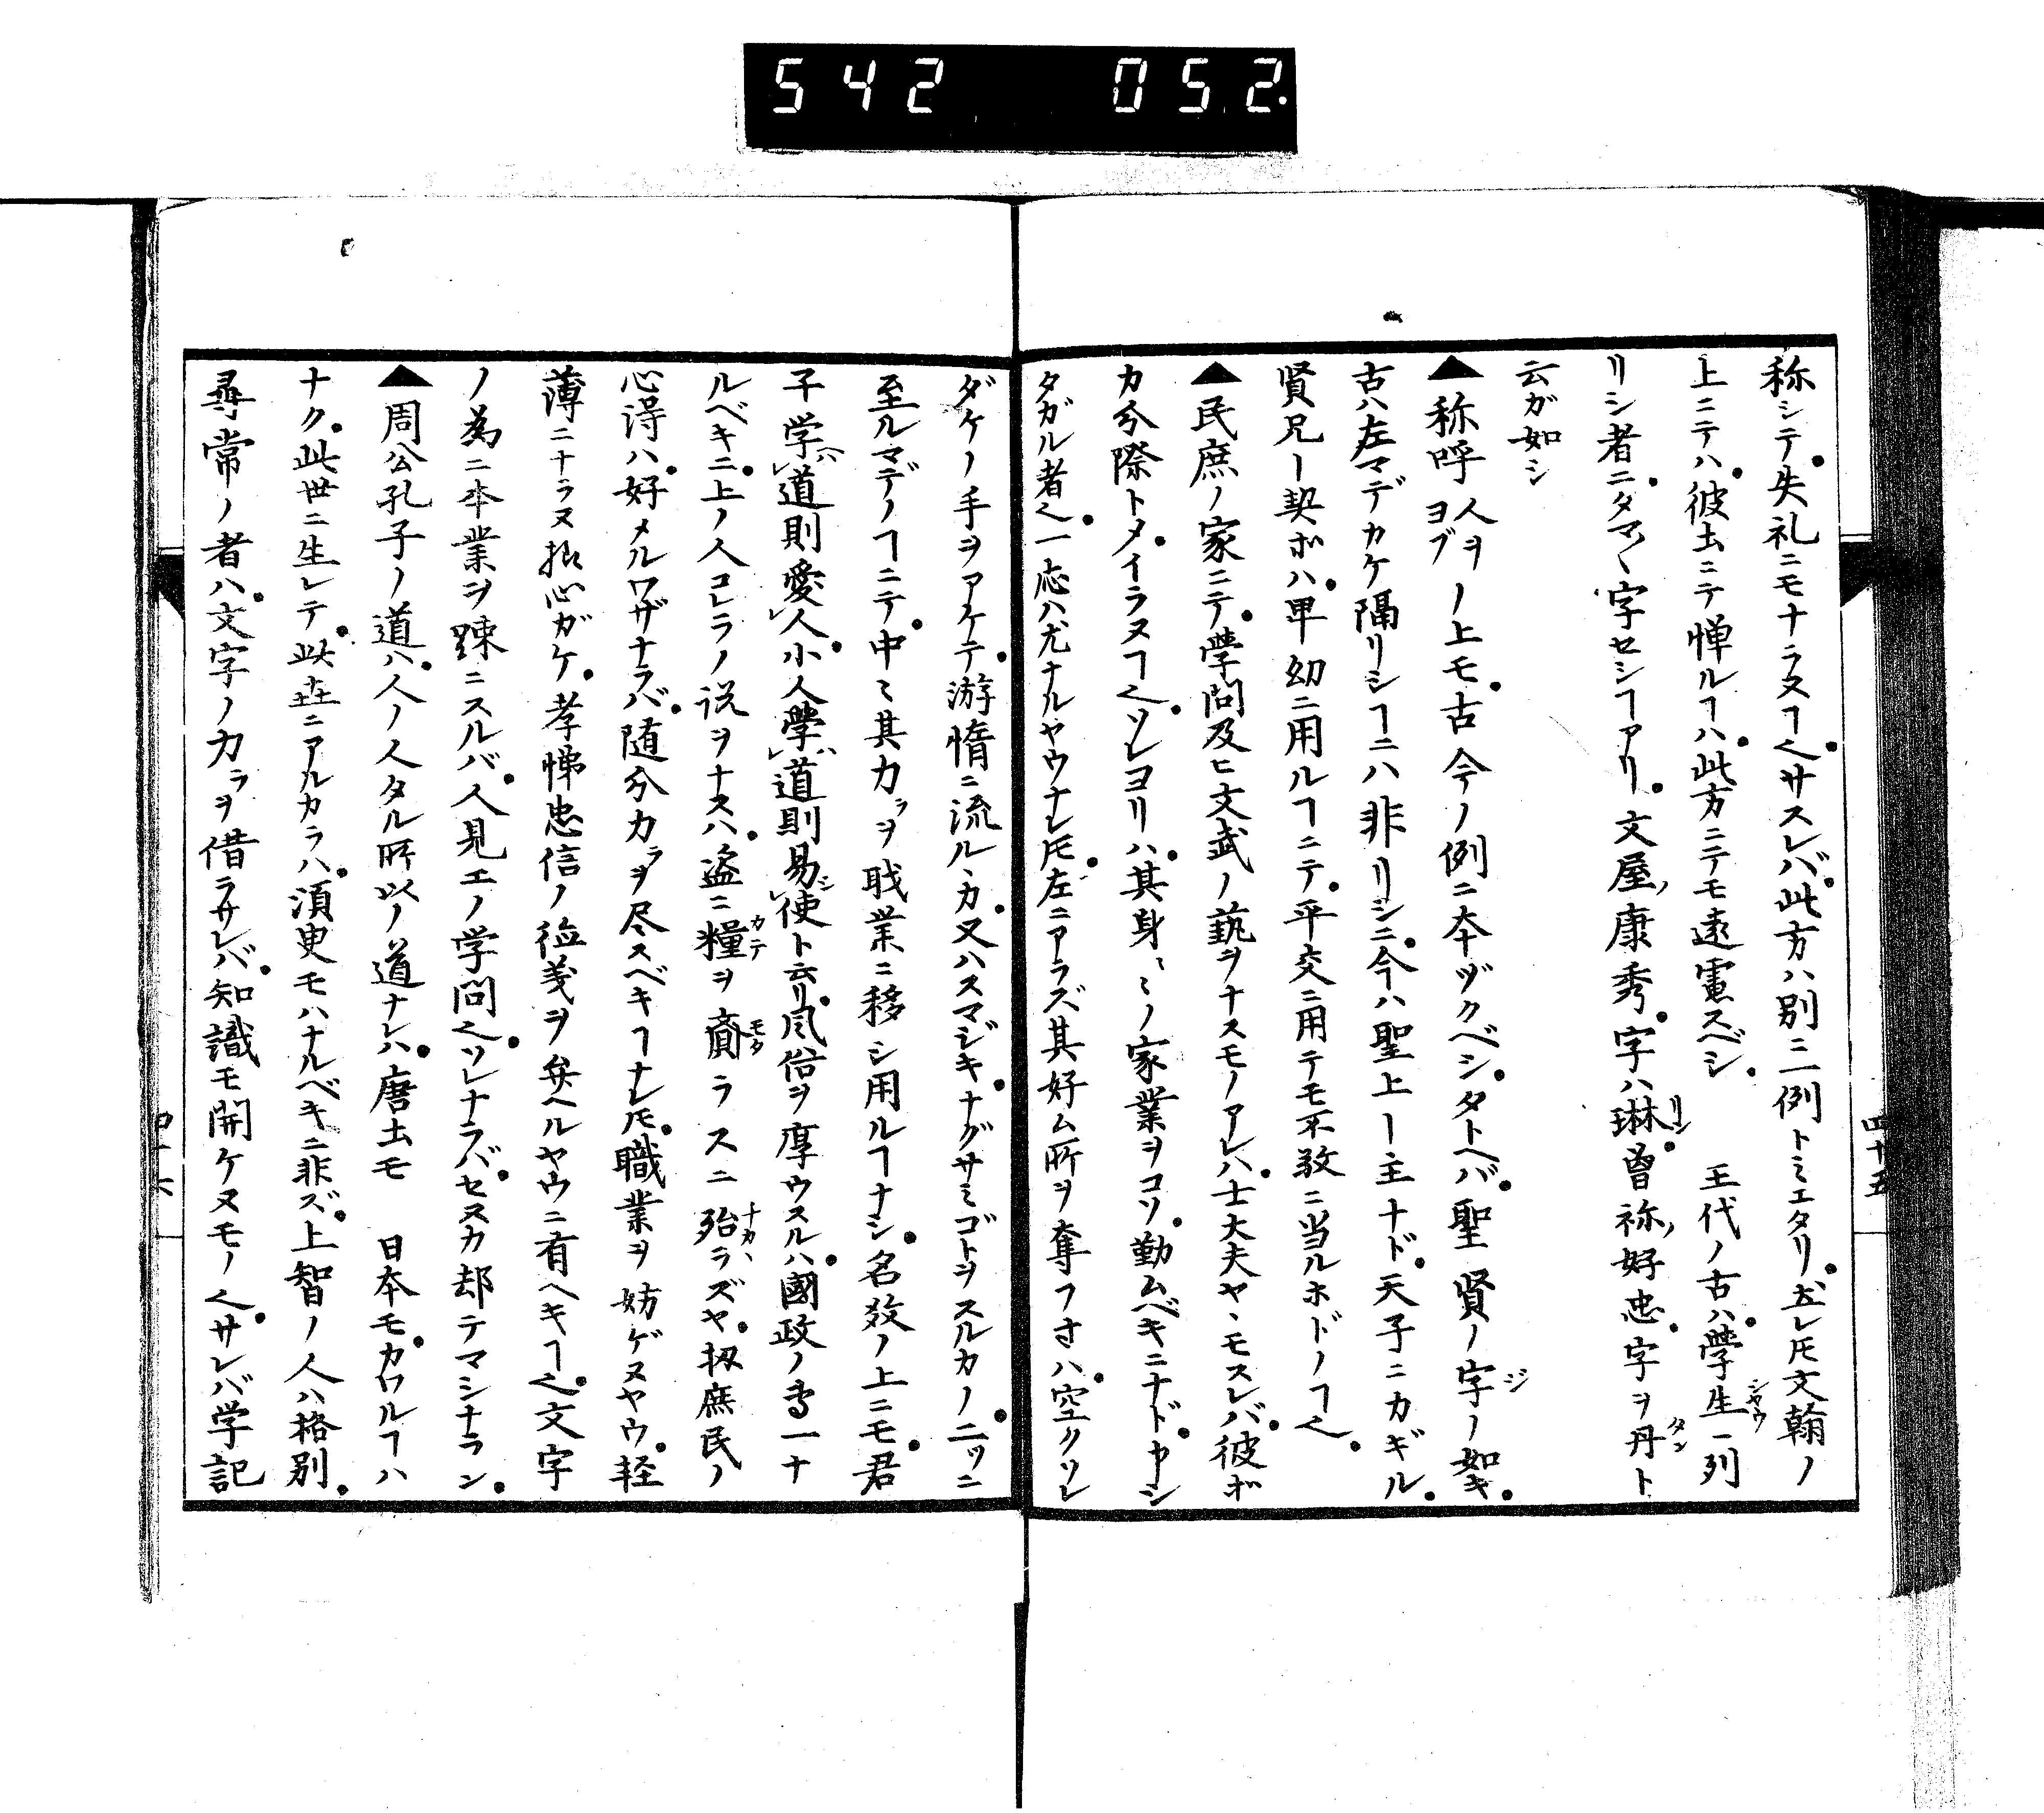 542 052.
称シテ失礼ニモナラヌヿ也サスレバ此方ハ別ニ一例トミエタリ然レ𪜈文翰ノ
上ニテハ彼土ニテ憚ルヿハ此方ニテモ遠慮スベシ 王代ノ古ハ學生一列
リシ者ニタマ〱字セシヿアリ文屋康秀字ハ琳曽祢好忠字ヲ丹ト
云ガ如シ
▲称呼人ヲヨブノ上モ古今ノ例ニ本ヅクベシタトヘバ聖賢ノ字ノ如キ
古ハ左マデカケ隔リシヿニハ非リシニ今ハ聖上ー主ナド天子ニカギル
賢兄ー契ボハ卑幼ニ用ルヿニテ平交ニ用テモ不敬ニ当ルホドノヿ也
▲民庶ノ家ニテ學問及ヒ文武ノ藝ヲナスモノアレハ士大夫ヤヽモスレバ彼ボ
カ分際トメイラヌヿ也ソレヨリハ其身〻ノ家業ヲコソ勤ムベキニナド申シ
タガル者也一応ハ尤ナルヤウナレ𪜈左ニアラズ其好ム所ヲ奪フ寸ハ空クソレ
四十五
ダケノ手ヲアケテ游惰ニ流ルヽカ又ハスマジキナグサミゴトヲスルカノ二ツニ
至ルマデノヿニテ中〻其力ラヲ職業ニ移シ用ルヿナシ名教ノ上ニモ君
子学道則愛人小人學道則易使ト云リ風俗ヲ厚ウスルハ國政ノ専一ナ
ルベキニ上ノ人コレラノ説ヲナスハ盗ニ糧ヲ齎ラスニ殆ラズヤ扨庶民ノ
心得ハ好メルワザナラバ随分力ラヲ尽スベキヿナレ𪜈職業ヲ妨ゲヌヤウ軽
薄ニナラヌ様心ガケ孝悌忠信ノ徳義ヲ弁ヘルヤウニ有ヘキヿ也文字
ノ為ニ本業ヲ踈ニスルバ人見エノ学問也ソレナラバセヌカ却テマシナラン
▲周公孔子ノ道ハ人ノ人タル所以ノ道ナレハ唐土モ 日本モカワルヿハ
ナク此世ニ生レテ此世ニアルカラハ須臾モハナルベキニ非ズ上智ノ人ハ格別
尋常ノ者ハ文字ノ力ラヲ借ラサレバ知識モ開ケヌモノ也サレバ学記
四十六